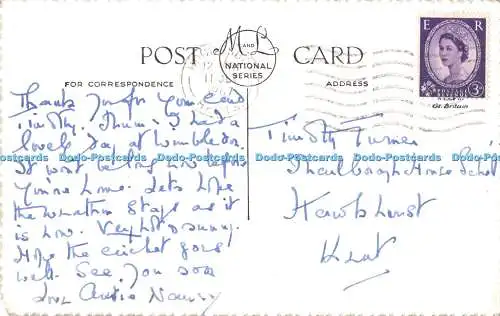 POST CARD
M AND L
NATIONAL
SERIES
FOR CORRESPONDENCE
ADDRESS
E R
POSTAGE REVENUE
3D
Gt. Britain
Thanks you for your card
Timothy. Mum & I had a
lovely day at Wimbledon.
It wont be long now before
Dodo-Postcards Dodo-Postcards Dodo-Postcards Dodo-Postcards Dodo-Postcards
you're home. Lets hope
the weather stays as it
is now. Very hot & sunny.
Hope the cricket goes
well. See you soon
love Auntie Nancy
Timothy Turner
Marlborough House School
Hawkhurst
Kent